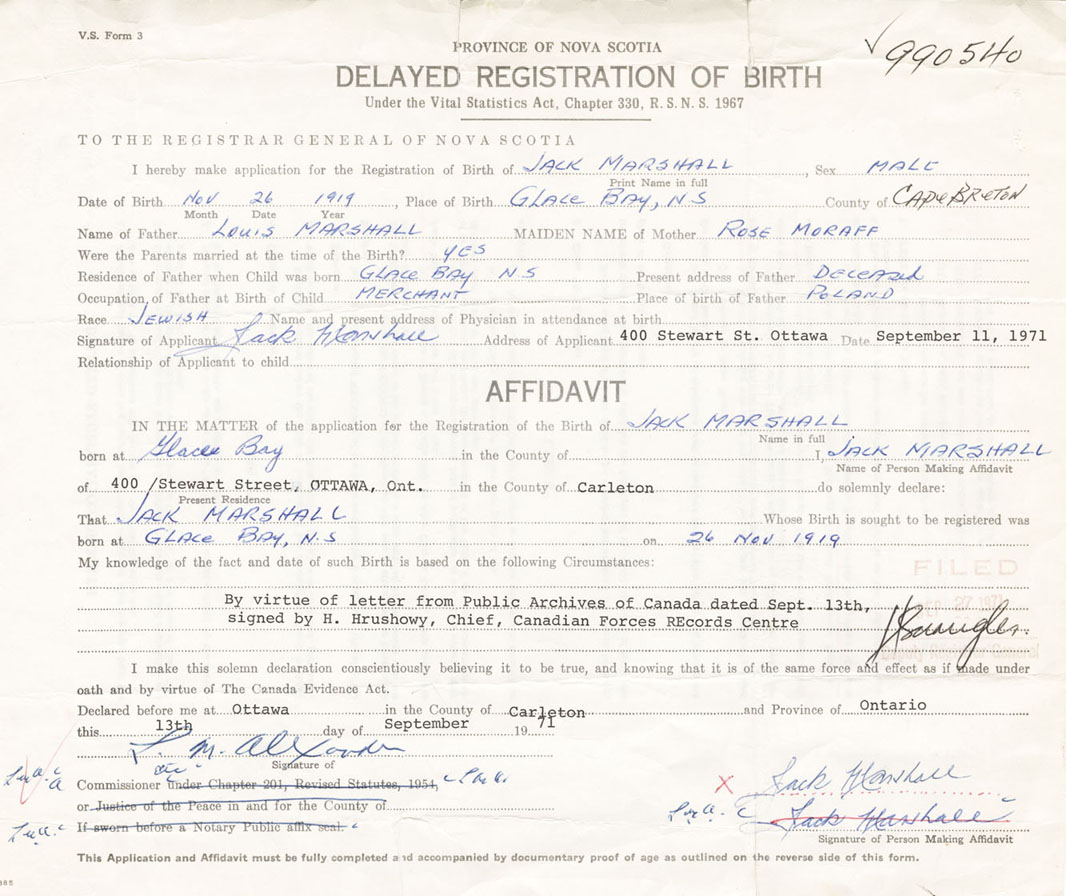 V.S. Form 3
990540
PROVINCE OF NOVA SCOTIA
DELAYED REGISTRATION OF BIRTH
Under the Vital Statistics Act, Chapter 330, R.S.N.S. 1967
TO THE REGISTRAR GENERAL OF NOVA SCOTIA
I hereby make application for the Registration of Birth of JACK MARSHALL, Sex MALE
Print Name in full
Date of Birth NOV 26 1919, Place of Birth GLACE BAY, NS County of CAPE BRETON
Month Date Year
Name of Father LOUIS MARSHALL MAIDEN NAME of Mother ROSE MORAFF
Were the Parents married at the time of the Birth? YES
Residence of Father when Child was born GLACE BAY NS Present address of Father DECEASED
Occupation of Father at Birth of Child MERCHANT Place of birth of Father POLAND
Race JEWISH Name and present address of Physician in attendance at birth
Signature of Applicant Jack Marshall Address of Applicant 400 Stewart St. Ottawa Date September 11, 1971
Relationship of Applicant to child
AFFIDAVIT
IN THE MATTER of the application for the Registration of the Birth of JACK MARSHALL
Name in full
born at Glace Bay in the County of I, JACK MARSHALL
Name of Person Making Affidavit
of 400 /Stewart Street, OTTAWA, Ont. in the County of Carleton do solemnly declare:
Present Residence
That JACK MARSHALL Whose Birth is sought to be registered was
born at GLACE BAY, N.S on 26 NOV 1919
My knowledge of the fact and date of such Birth is based on the following Circumstances:
FILED
27 1971
By virtue of letter from Public Archives of Canada dated Sept. 13th,
signed by H. Hrushowy, Chief, Canadian Forces REcords Centre
Deputy Registrar General
I make this solemn declaration conscientiously believing it to be true, and knowing that it is of the same force and effect as if made under
oath and by virtue of The Canada Evidence Act.
Declared before me at Ottawa in the County of Carleton and Province of Ontario
this 13th day of September 1971
Signature of
Commissioner under Chapter 201, Revised Statutes, 1954,
or Justice of the Peace in and for the County of
If sworn before a Notary Public affix seal.
X Jack Marshall
Jack Marshall
Signature of Person Making Affidavit
This Application and Affidavit must be fully completed and accompanied by documentary proof of age as outlined on the reverse side of this form.